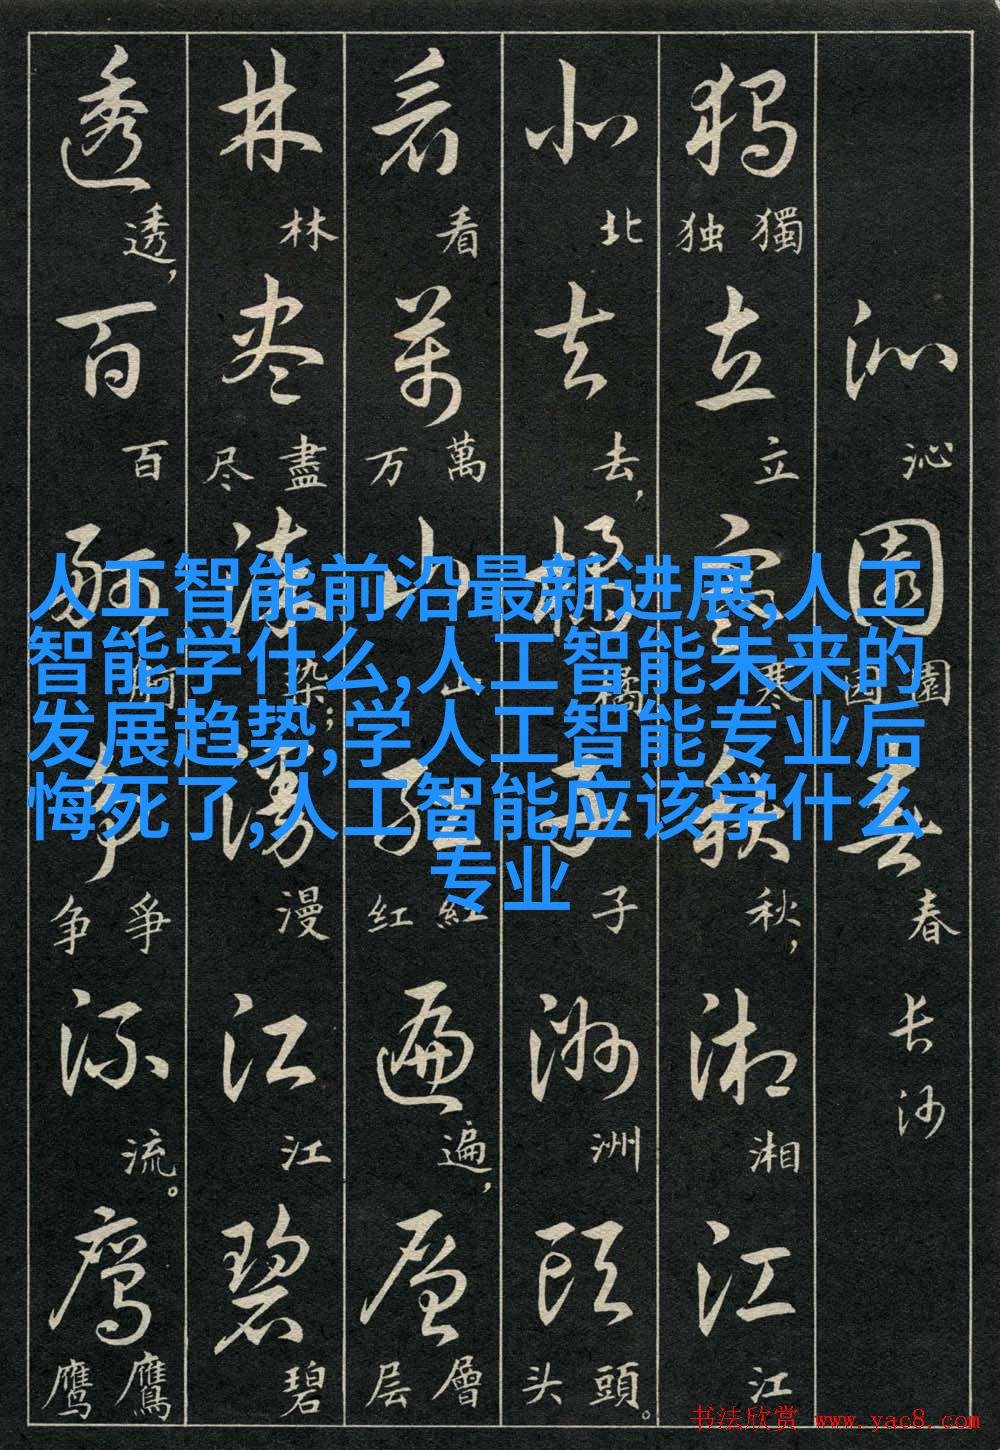 沁園春
园
长沙
獨立寒秋,湘江
独
北去,橘子洲頭。
头
看萬山紅遍,層
万红层
林盡染;漫江碧
尽
透,百舸爭流。鷹
争鹰
人工智能前沿最新进展,人工
智能学什么,人工智能未来的
发展趋势,学人工智能专业后
悔死了,人工智能应该学什么
专业
书法欣赏 www.yac8.com